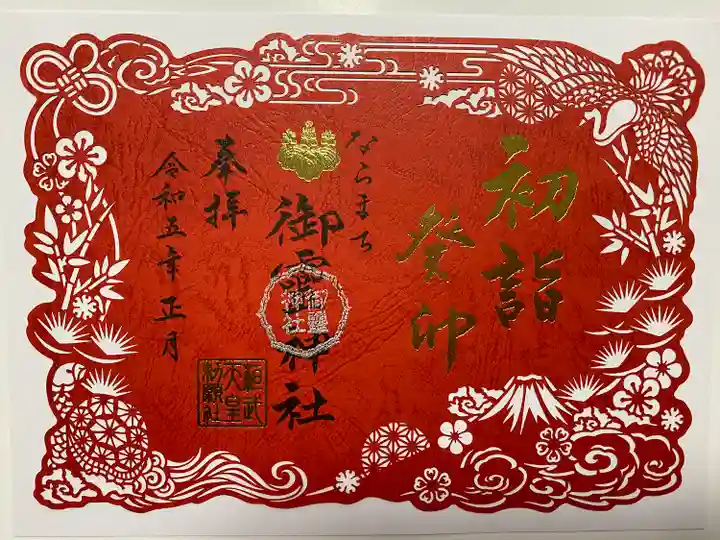 初詣
癸卯
ならまち
御霊神社
奉拝
令和五年正月
桓武
天皇
勅願社